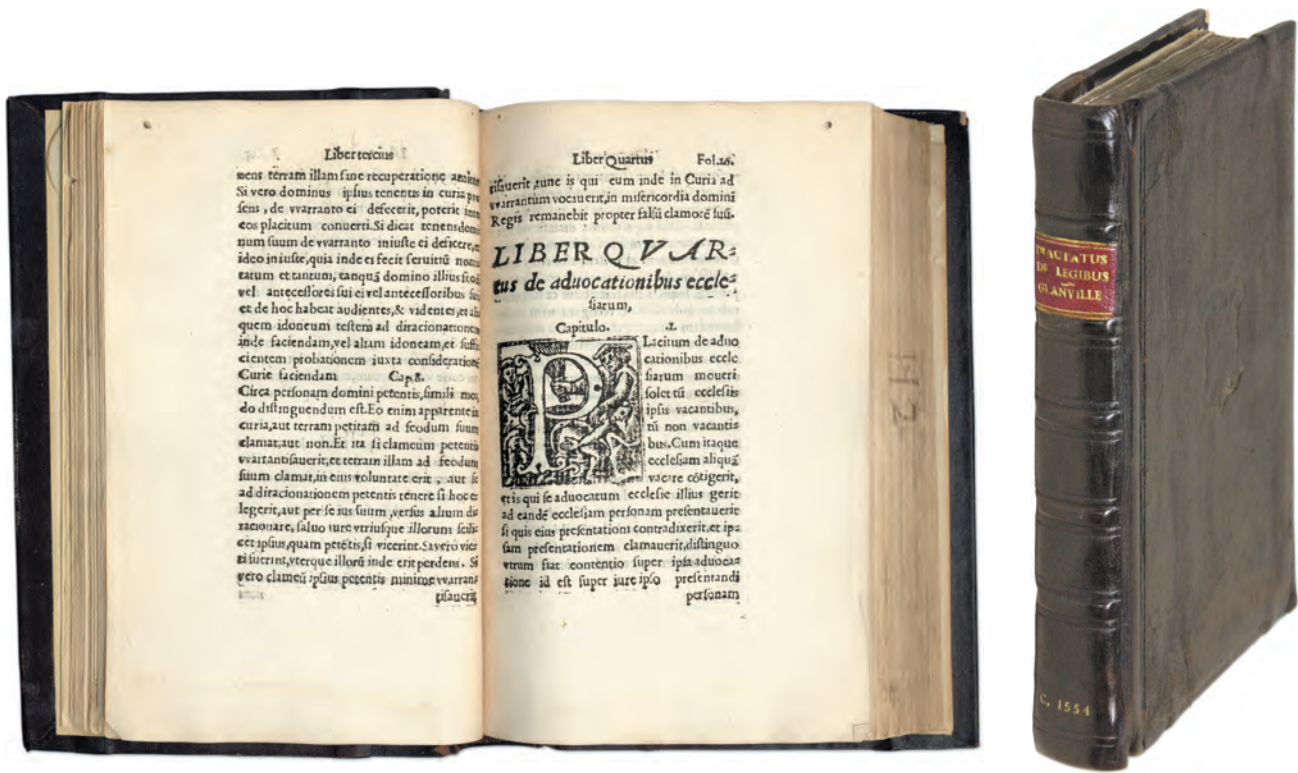 Liber tercius
mens terram illam sine recuperatione
Si vero dominus ipsius tenentis in curia
sens, de vvarranto ei defecerit, poterit
eos placitum conuerti. Si dicat tenens
num suum de vvarranto iniuste ei deficere,
ideo iniuste, quia inde ei fecit seruitiū
tatum et tantum, tanquā domino illius
vel antecessores sui ei vel antecessoribus
et de hoc habeat audientes, & videntes, et
quem idoneum testem ad diracionationem
inde faciendam, vel aliam idoneam, et
cientem probationem iuxta consideratione
Curie faciendam Cap. 8.
Circa personam domini petentis, simili mo,
do distinguendum est. Eo enim apparente in
curia, aut terram petitam ad feodum suum
clamat, aut non. Et ita si clameum petentis
vvarrantisauerit, et terram illam ad feodum
suum clamat, in eius voluntate erit, aut se
ad diracionationem petentis tenere si hoc e=
legerit, aut per se ius suum, versus alium di=
racionare, saluo iure vtriusque illorum scili=
cet ipsius, quam petētis, si vicerint. Sa vero vic=
ti fuerint, vterque illorū inde erit perdens. Si
vero clameū ipsius petentis minime vvarran=
tisauerit
Liber Quartus Fol. 26.
tisauerit, tunc is qui eum inde in Curia ad
vvarrantum vocauerit, in misericordia domini
Regis remanebit propter falsū clamorē suū.
LIBER QVAR=
tus de aduocationibus eccle=
siarum,
Capitulo. .1.
PLacitum de aduo
cationibus eccle
siarum moueri
solet tū ecclesiis
ipsis vacantibus,
tū non vacantis
bus. Cum itaque
ecclesiam aliquā
vacare cōtigerit,
et is qui se aduocatum ecclesie illius gerit
ad eandē ecclesiam personam presentauerit
si quis eius presentationi contradixerit, et ip=
sam presentationem clamauerit, distinguo
vtrum fiat contentio super ipsa aduoca=
tione id est super iure ipso presentandi
personam
TRACTATUS
DE LEGIBUS
GLANVILLE
C. 1554